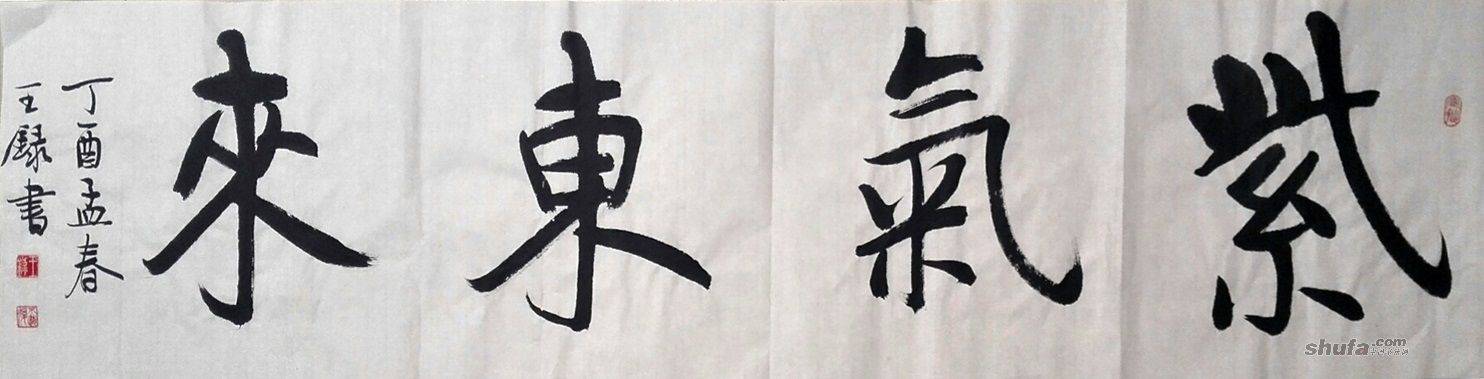 紫氣東來
丁酉孟春
王録書
shufa.com